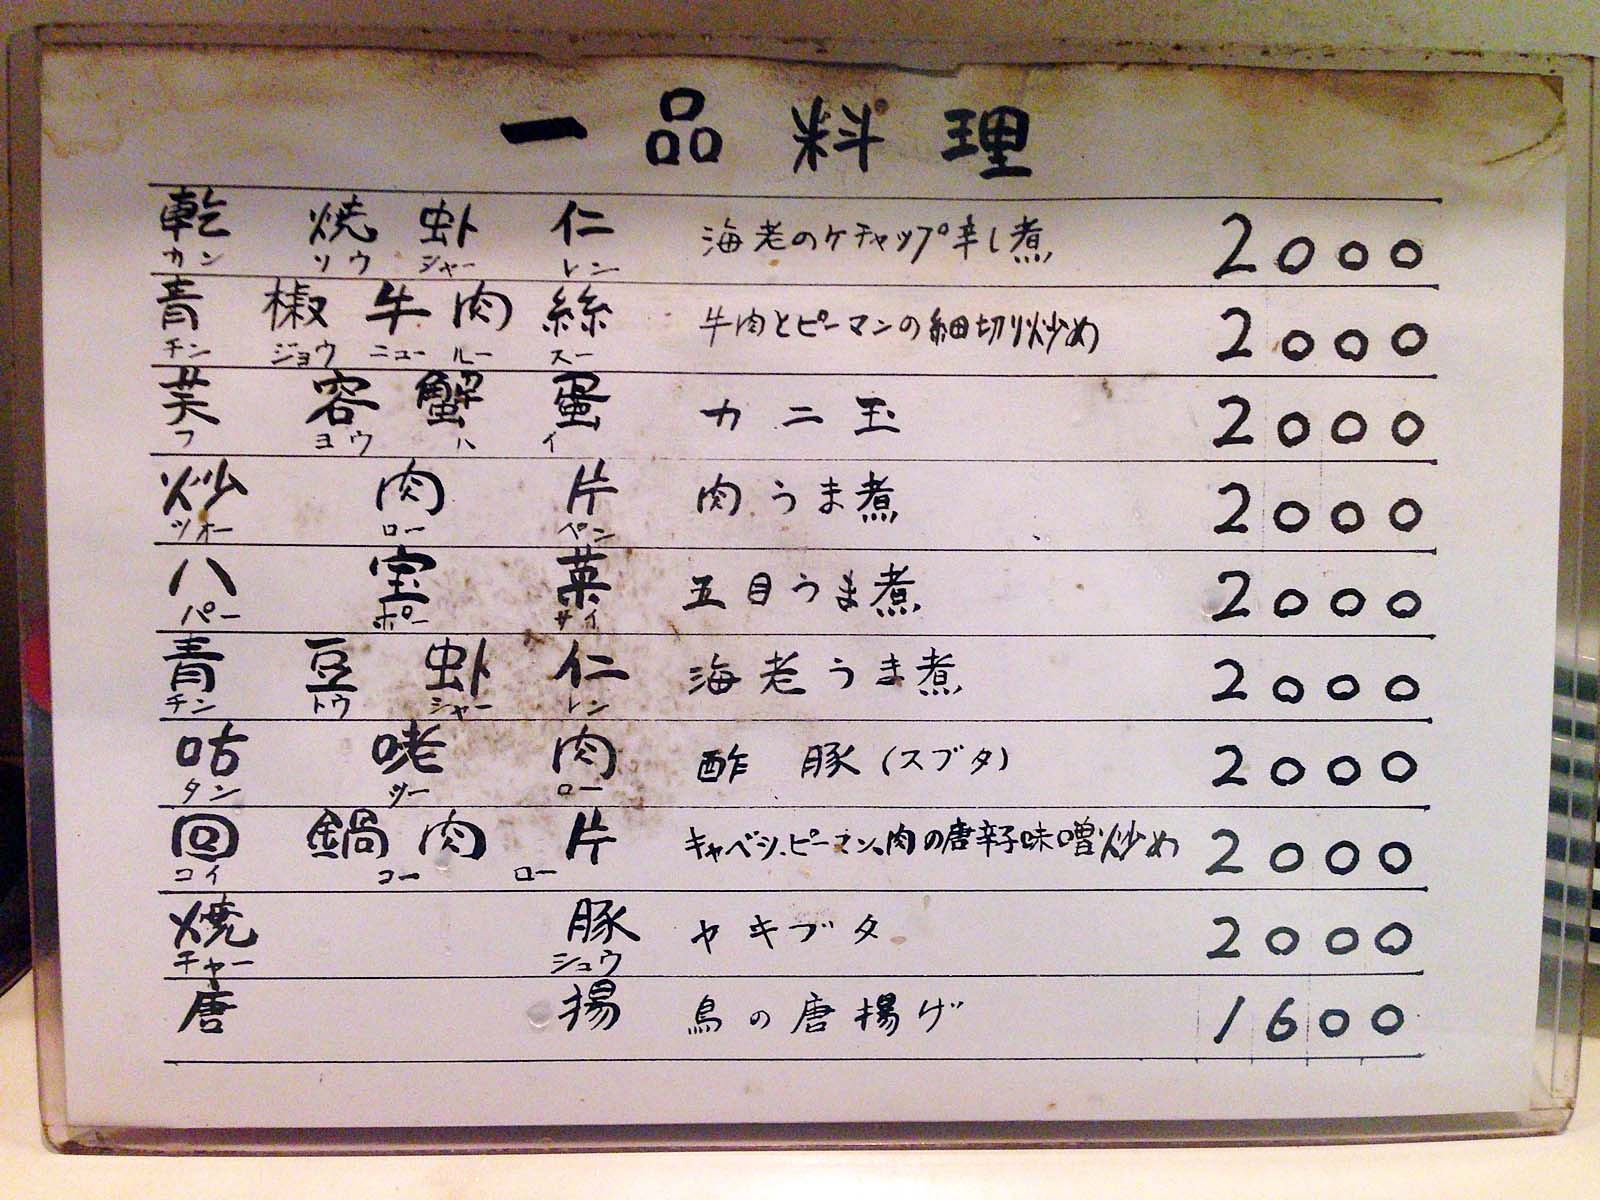 一品料理
乾焼虾仁 海老のケチャップ辛し煮 2000
カンソウシャーレン
青椒牛肉絲 牛肉とピーマンの細切り炒め 2000
チンジョウニュールースー
芙容蟹蛋 カニ玉 2000
フヨウハイ
炒肉片 肉うま煮 2000
ツォーローペン
八宝菜 五目うま煮 2000
パーポーサイ
青豆虾仁 海老うま煮 2000
チントウシャーレン
咕咾肉 酢豚(スブタ) 2000
タンツーロー
回鍋肉片 キャベツ、ピーマン、肉の唐辛子味噌炒め 2000
コイコーロー
焼豚 ヤキブタ 2000
チャーシュウ
唐揚 鳥の唐揚げ 1600